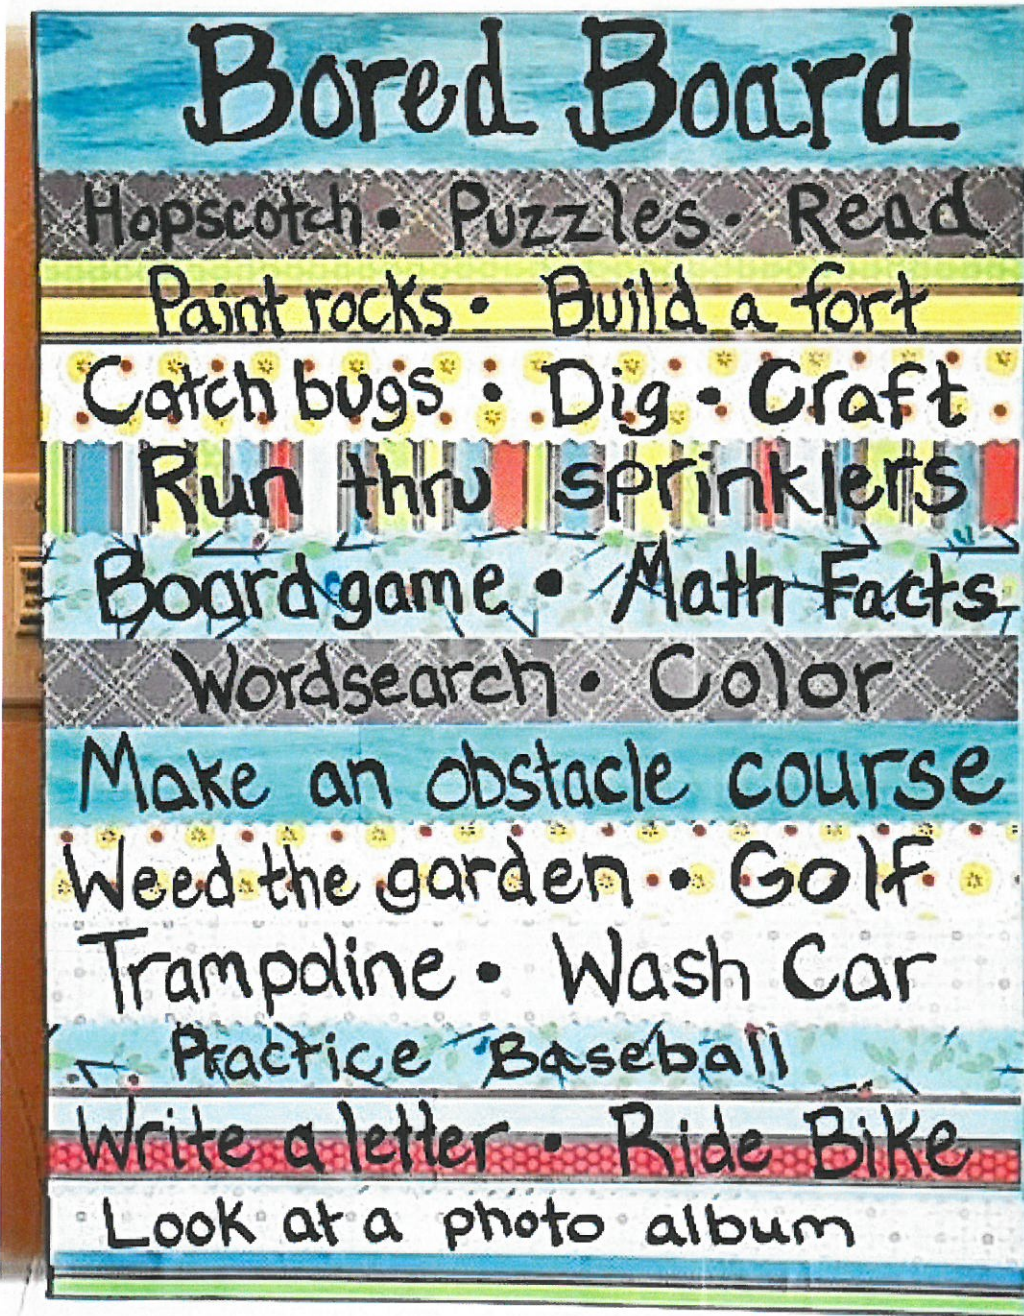 Bored Board
Hopscotch • Puzzles • Read
Paint rocks • Build a fort
Catch bugs • Dig • Craft
Run thru sprinklers
Board game • Math Facts
Wordsearch • Color
Make an obstacle course
Weed the garden • Golf
Trampoline • Wash Car
Practice Baseball
Write a letter • Ride Bike
Look at a photo album